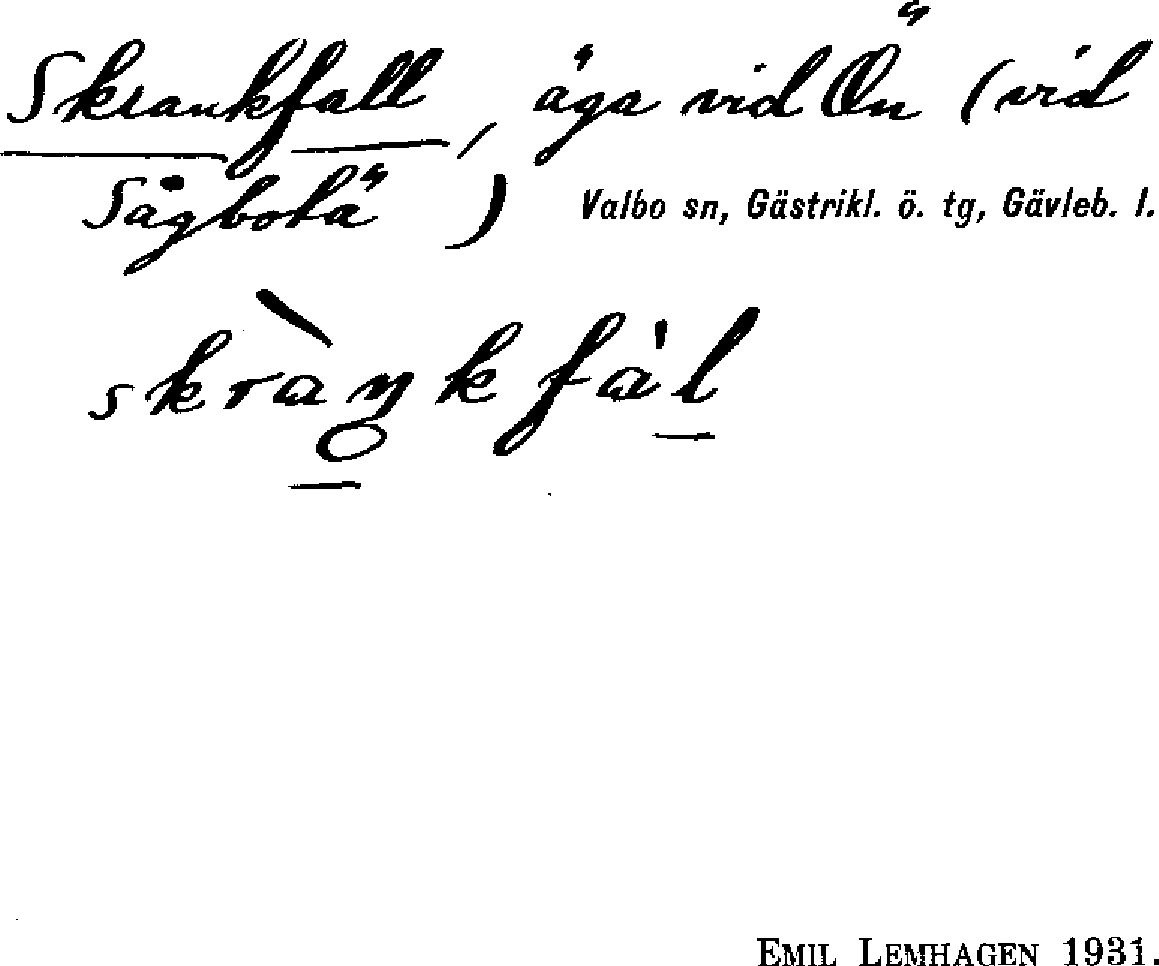 Skrankfall, äga vid Ön (vid
Sågbotä) Valbo sn, Gästrikl. ö. tg, Gävleb. l.
skràŋkfàl
EMIL LEMHAGEN 1931.